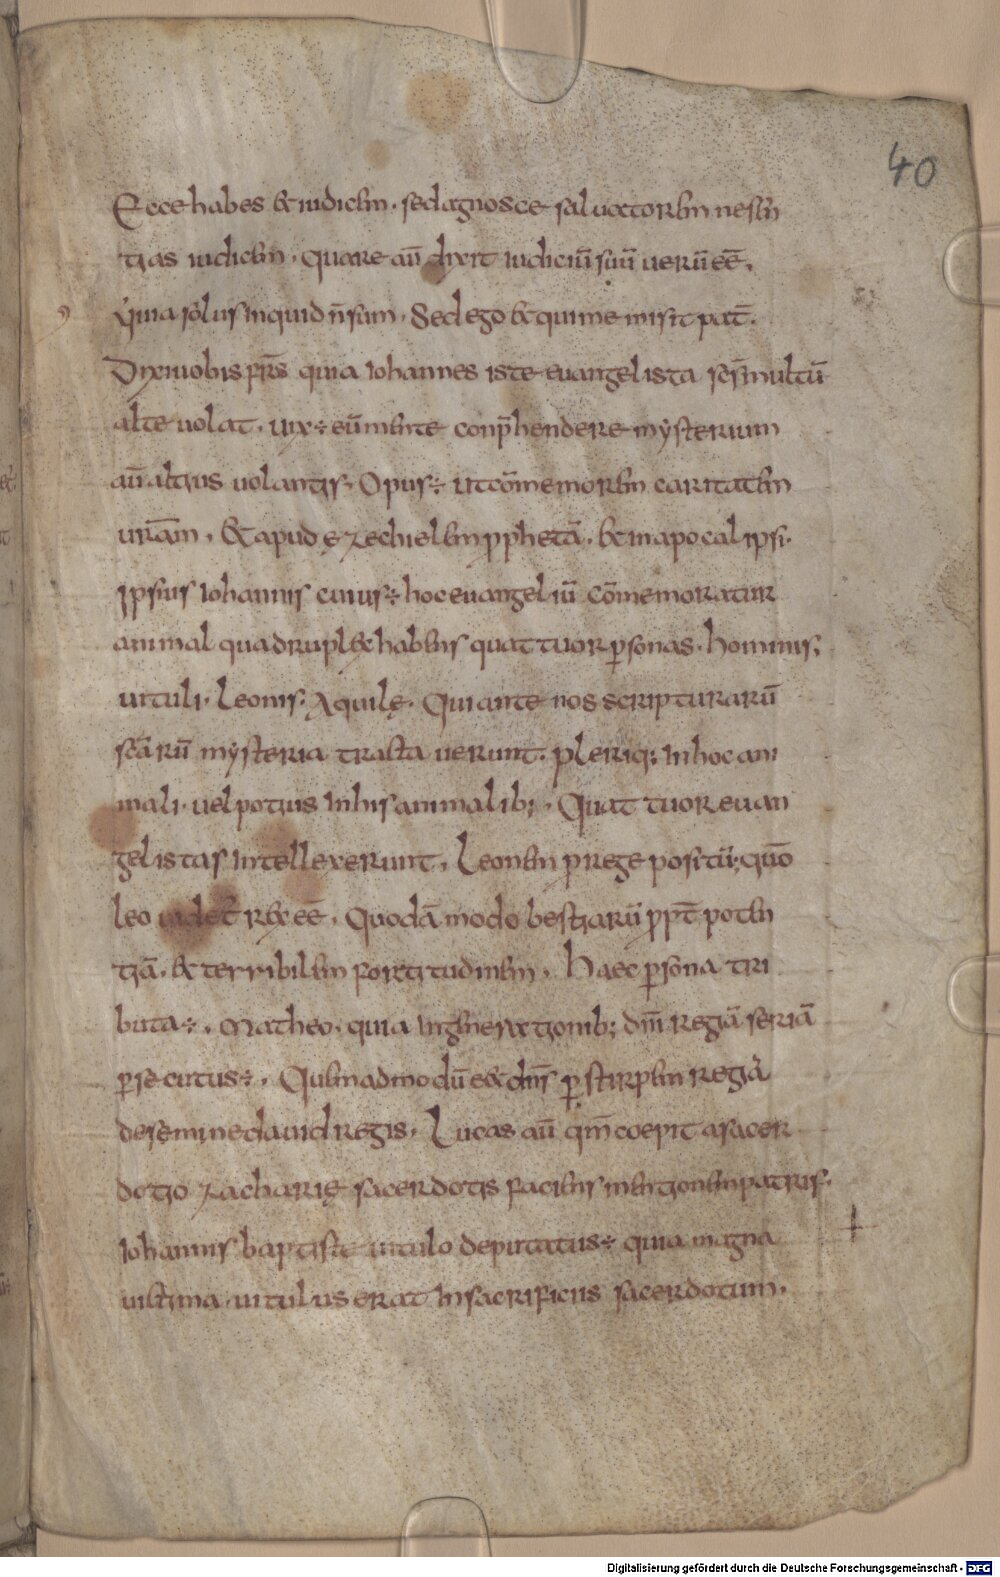 40
Ecce habes & iudicem. sed agnosce saluatorem ne sen
tias iudicem. quare aū dixit iudiciū suū uerū eē.
Quia solus inquid n̄ sum. Sed ego & qui me misit pat̄.
Dixi uobis frs̄ quia iohannes iste euangelista scs̄ multū
alte uolat. uix ÷ eū mente conp̄hendere mysterium
aū altius uolantis. Opus ÷ ut cōmemorem caritatem
urām. & apud ęzechielem pphetā. & in apocalipsi.
Ipsius iohannis cuius ÷ hoc euangeliū cōmemoratur
animal quadrupl& habens quattuor ꝑsonas. hominis.
uituli. Leonis. Aquilę. Qui ante nos scripturarū
scārū mysteria tractauerunt. pleriq; In hoc ani
mali. uel potius In his animalib;. Quattuor euan
gelistas Intellexerunt. Leonem p rege positū; quō
leo uidet̄ rex eē. Quodā modo bestiarū ppt̄ poten
tiā. & terribilem fortitudinem. Haec ꝑsona tri
buta ÷. Matheo. quia Ingenerationib; dn̄i regiā seriā
ꝑsecutus ÷. Quemadmodū & dn̄s ꝑ stirpem regiā
de semine dauid regis. Lucas aū qm̄ coepit a sacer
dotio zacharię sacerdotis faciens mentionem patris.
Iohannis baptistę uitulo deputatus ÷ quia magna
uictima. uitulus erat In sacrificiis sacerdotum.
Digitalisierung gefördert durch die Deutsche Forschungsgemeinschaft - DFG